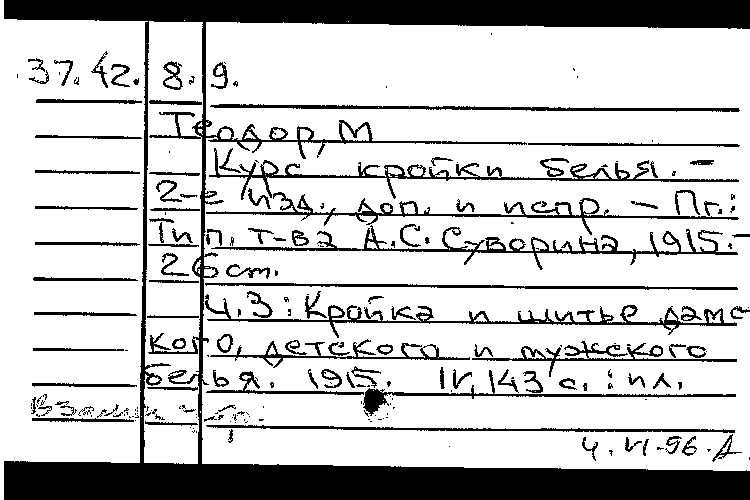 37.42. 8. 9.
Теодор, М
Курс кройки белья. –
2-е изд., доп. и испр. – Пг.:
Тип. т-ва А.С. Суворина, 1915. –
26 ст.
Ч.3: Кройка и шитье дамс-
кого, детского и мужского
белья. 1915. IV, 143 с.: ил.
Взамен
4.VI-96.